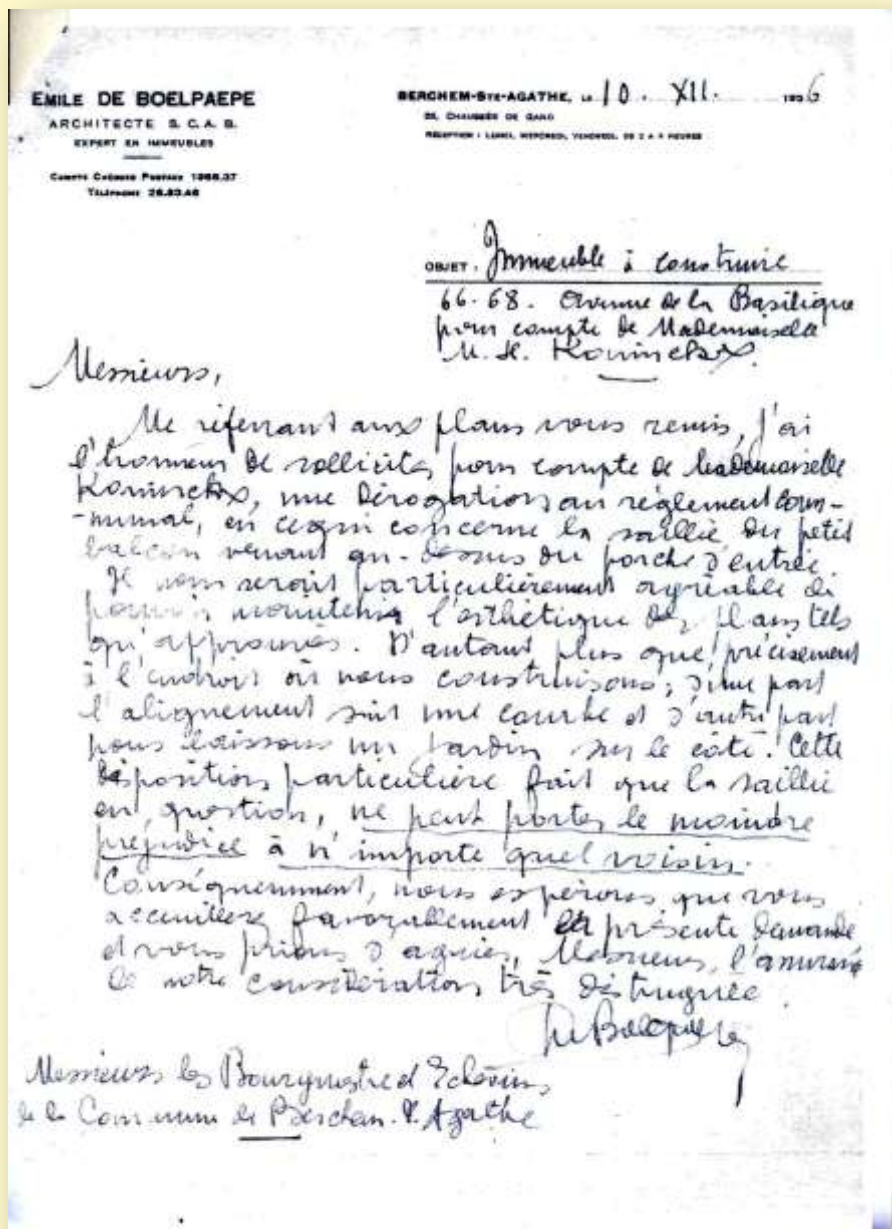 EMILE DE BOELPAEPE
ARCHITECTE S. C. A. B.
EXPERT EN IMMEUBLES
COMPTE CHÈQUES POSTAUX 1966.37
TÉLÉPHONE 26.93.46
BERCHEM-STE-AGATHE, LE 10. XII. 1936
CHAUSSÉE DE GAND
RÉCEPTION : LUNDI, MERCREDI, VENDREDI, DE 2 A HEURES
OBJET : Immeuble à construire
66-68. Avenue de la Basilique
pour compte de Mademoiselle
M. H. Koninckx.
Messieurs,
Me référant aux plans vous remis, j'ai
l'honneur de solliciter, pour compte de Mademoiselle
Koninckx, une dérogation au règlement com-
-munal, en ce qui concerne la saillie du petit
balcon venant au-dessus du porche d'entrée.
Il nous serait particulièrement agréable de
pouvoir maintenir l'esthétique des plans tels
qu'approuvés. D'autant plus que, précisément
à l'endroit où nous construisons, d'une part
l'alignement suit une courbe et d'autre part
nous laissons un jardin sur le côté. Cette
disposition particulière fait que la saillie
en question, ne peut porter le moindre
préjudice à n'importe quel voisin.
Conséquemment, nous espérons que vous
accueillerez favorablement la présente demande
et vous prions d'agréer, Messieurs, l'assurance
de notre considération très distinguée.
De Boelpaepe
Messieurs les Bourgmestre et Echevins
de la Commune de Berchem. St. Agathe